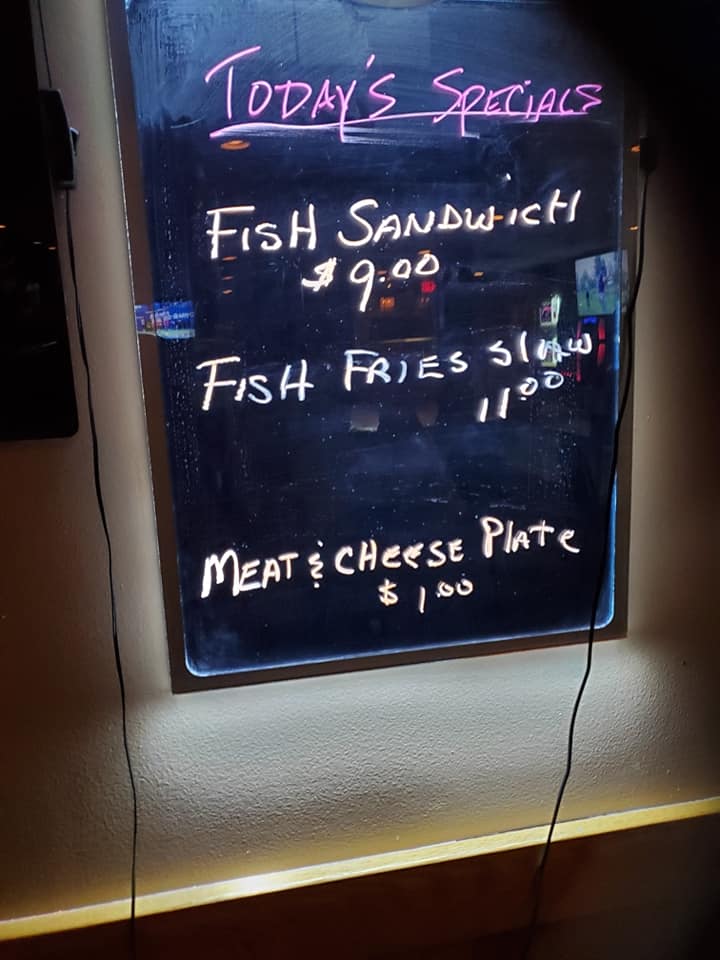 TODAY'S SPECIALS
FISH SANDWICH
$9.00
FISH FRIES SLAW
11.00
MEAT & CHEESE PLATE
$1.00